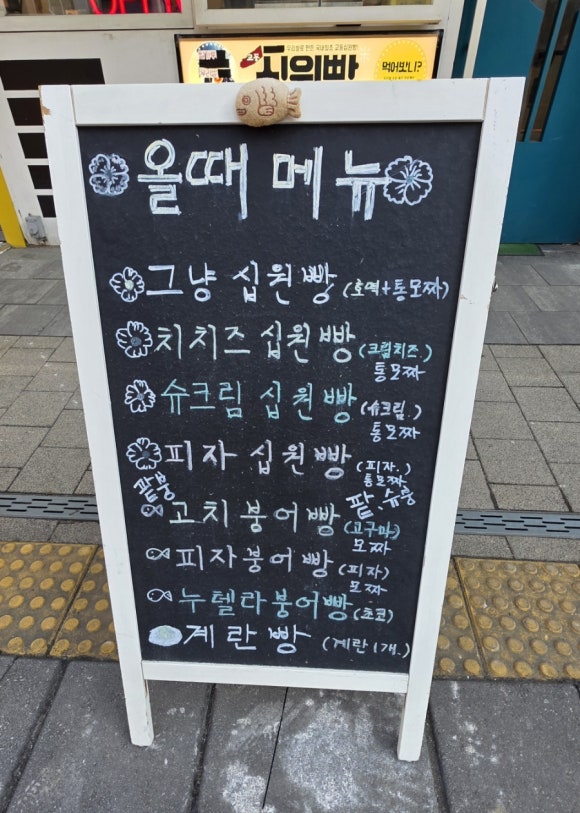 십원빵
먹어보니?
올때 메뉴
그냥 십원빵 (호떡+통모짜)
치치즈 십원빵 (크림치즈.)
통모짜
슈크림 십원빵 (슈크림.)
통모짜
피자 십원빵 (피자.)
통모짜
팥붕
팥.슈붕
고치붕어빵 (고구마)
모짜
피자붕어빵 (피자)
모짜
누텔라붕어빵 (초코)
계란빵 (계란1개.)